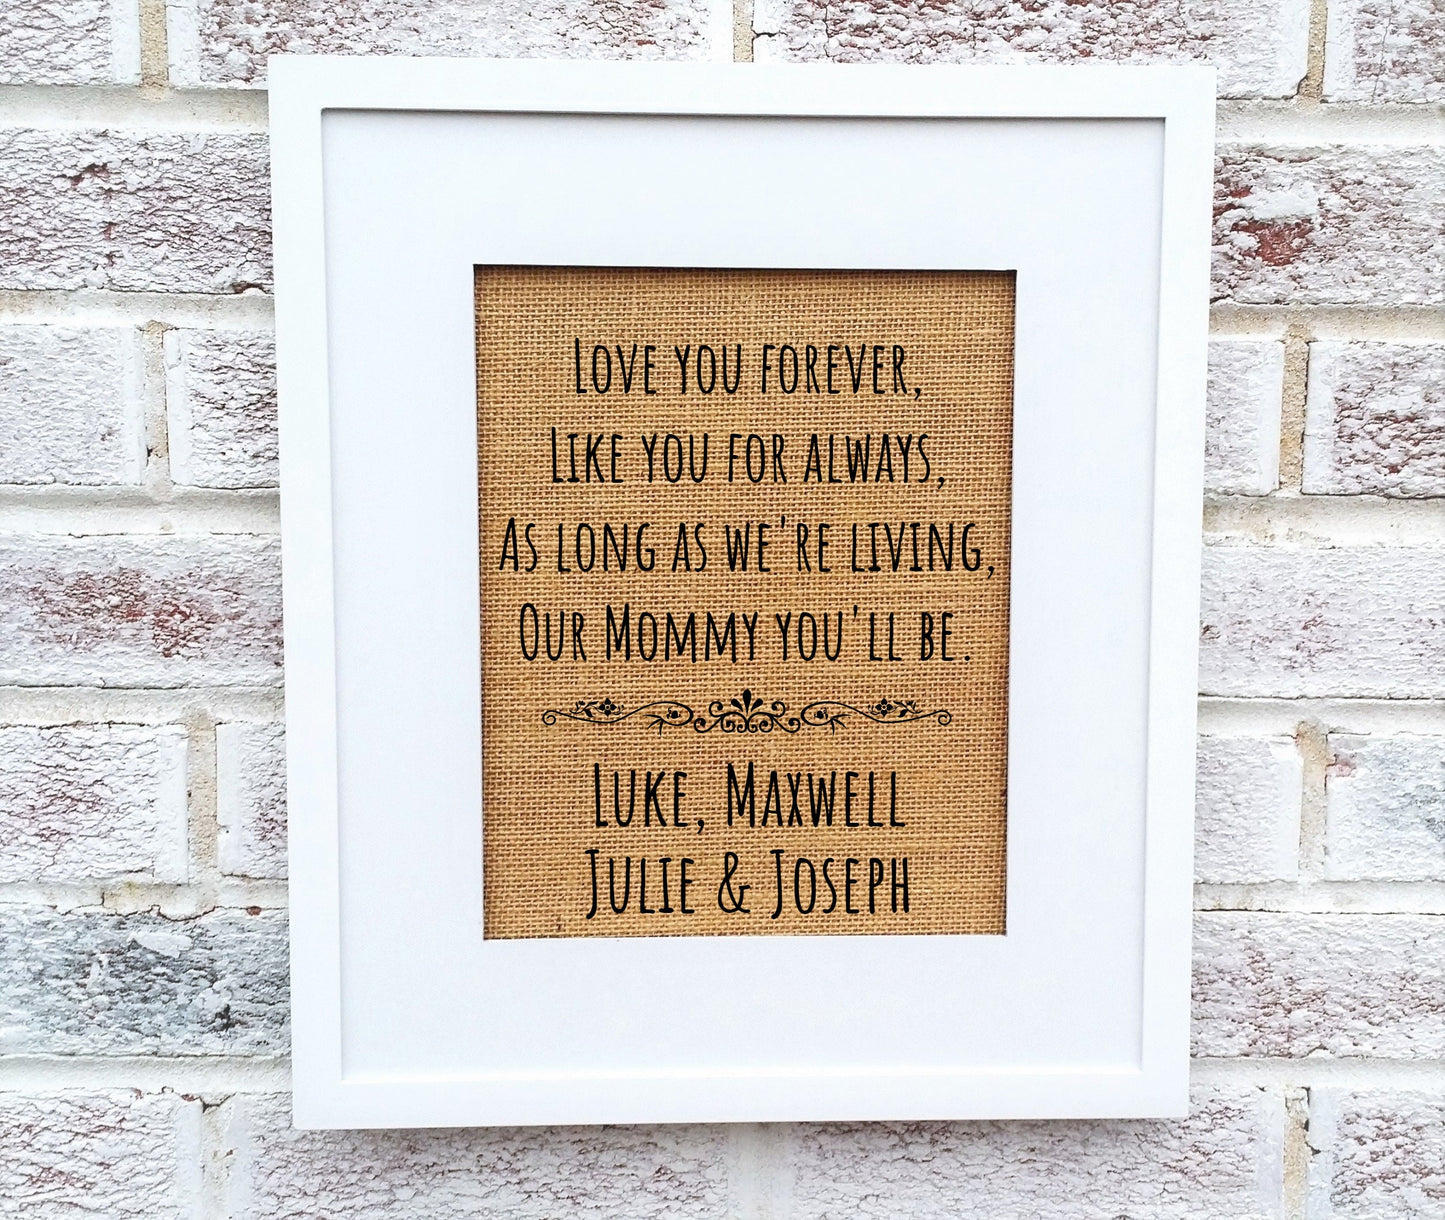 Love you forever,
Like you for always,
As long as we're living,
Our Mommy you'll be.
Luke, Maxwell
Julie & Joseph